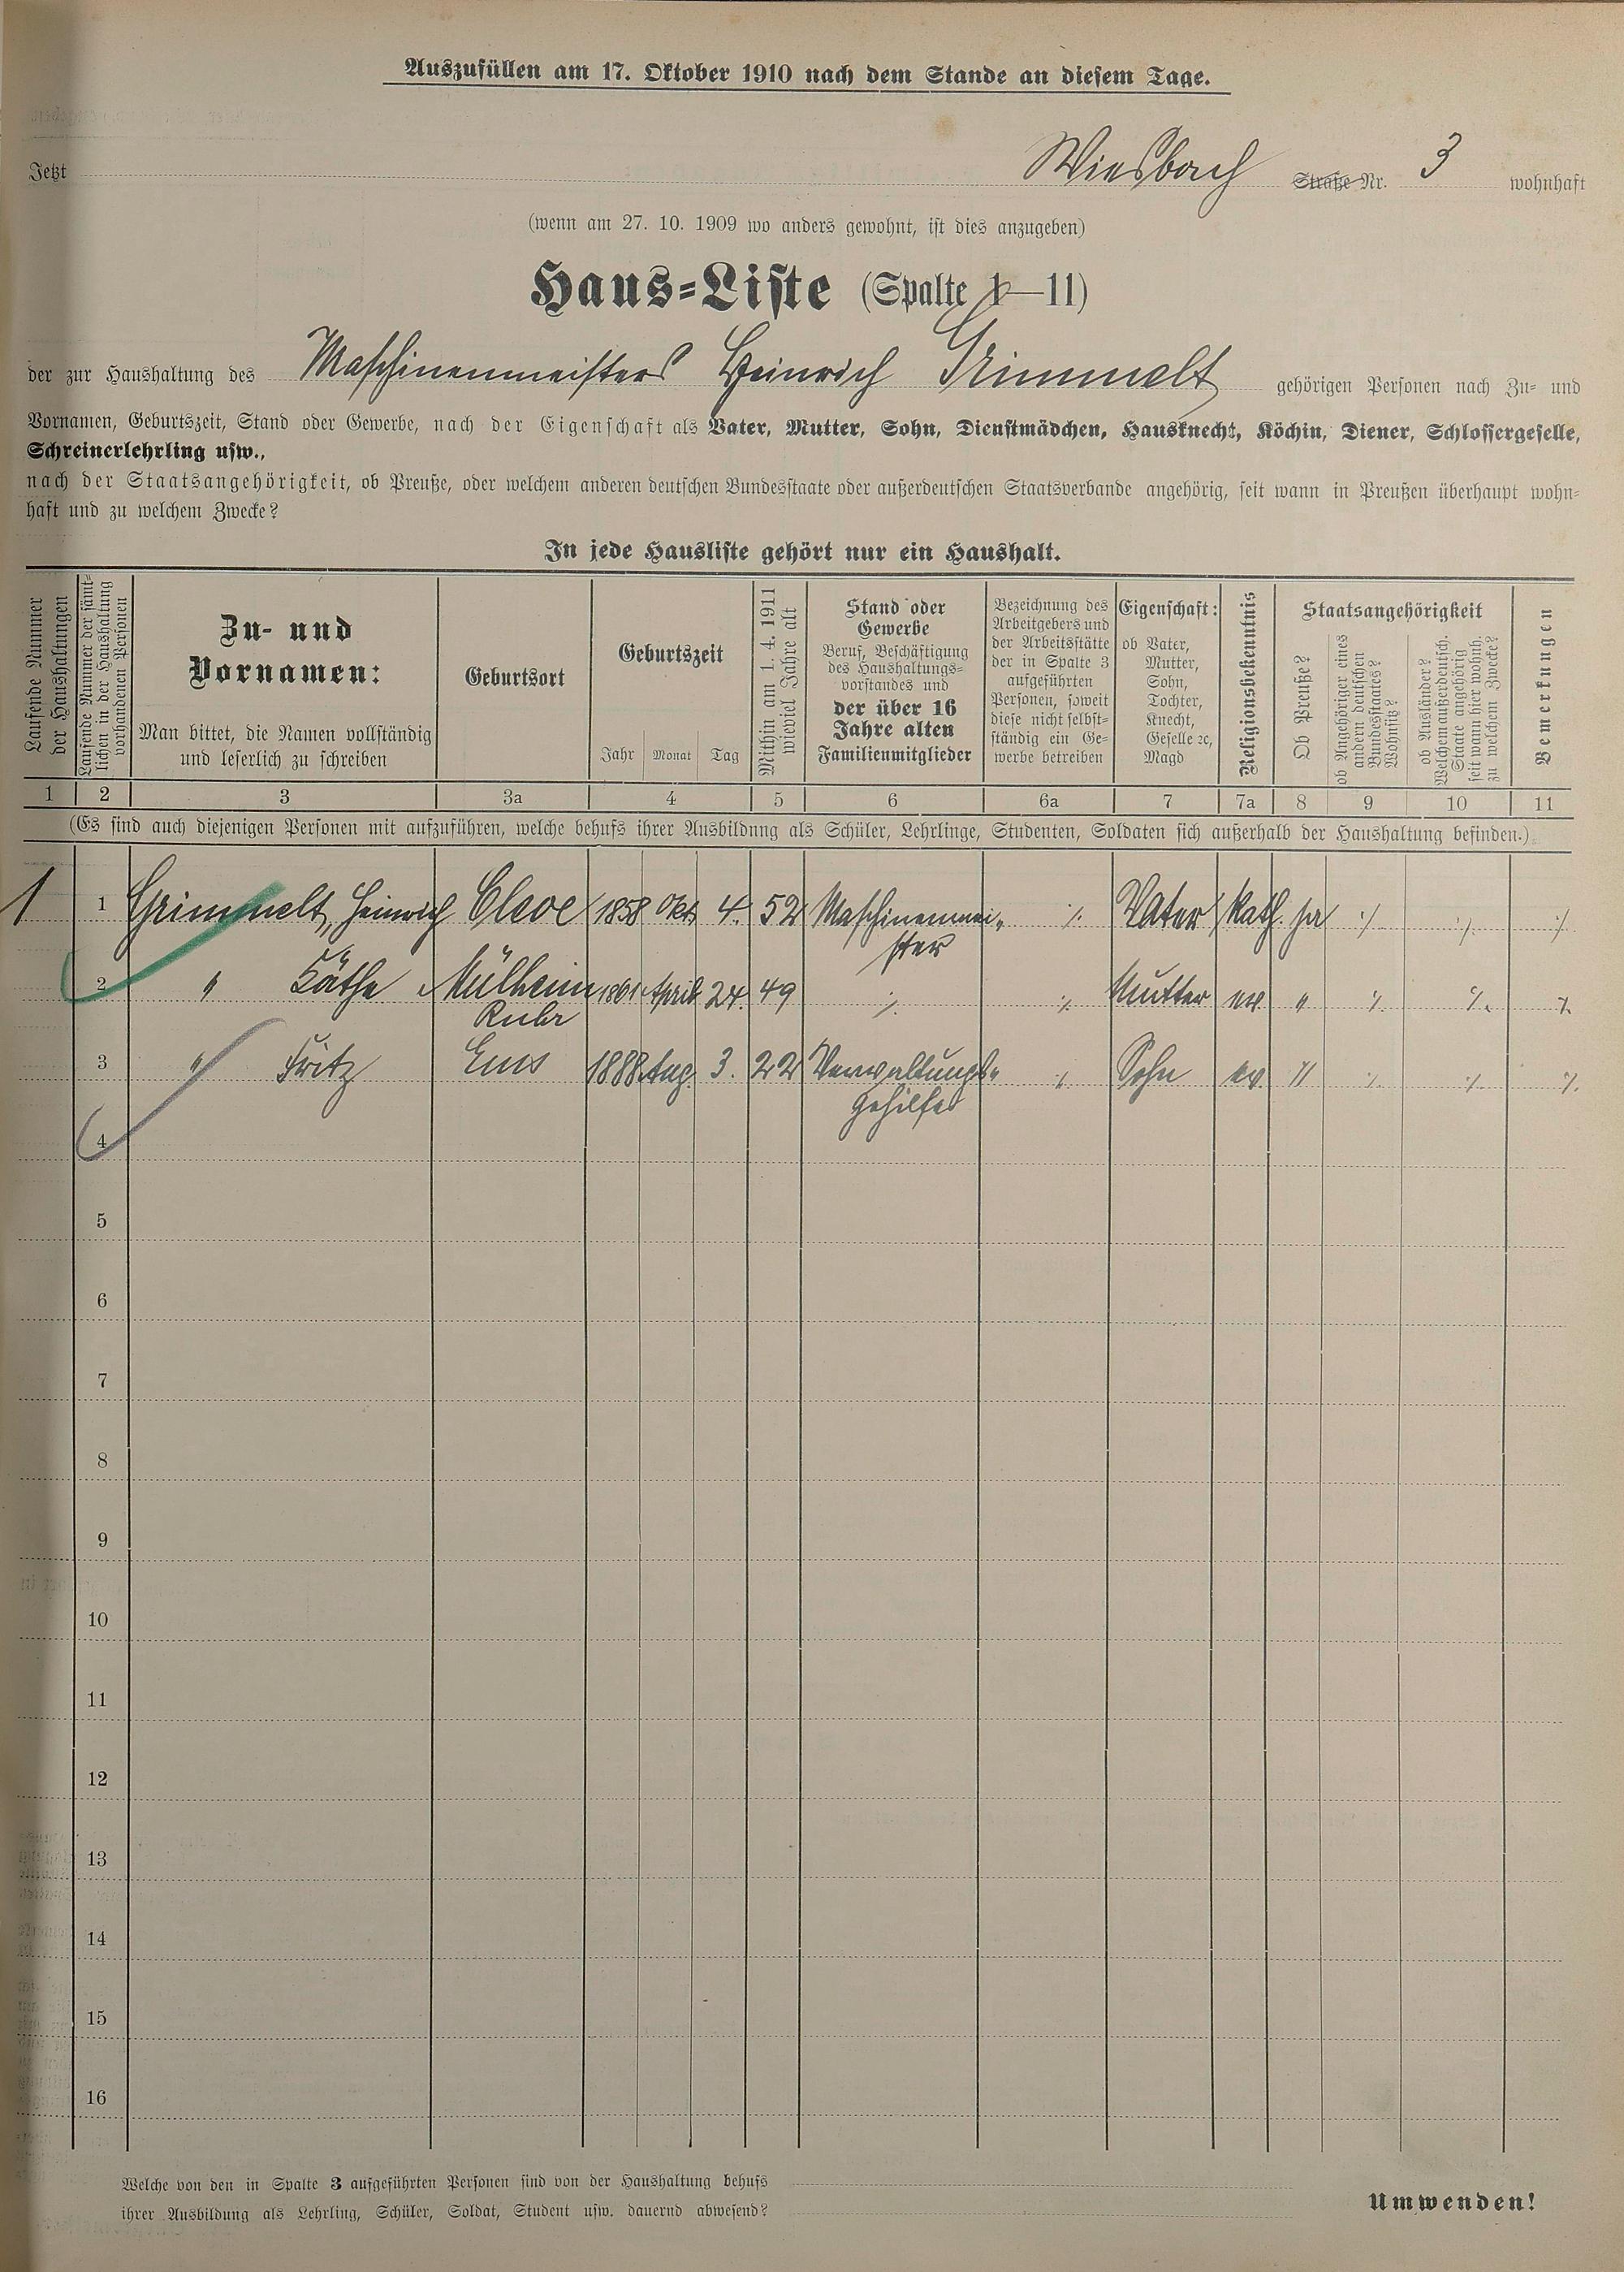 Auszufüllen am 17. Oktober 1910 nach dem Stande an diesem Tage.
Jetzt Wiesbach Straße Nr. 3 wohnhaft
(wenn am 27. 10. 1909 wo anders gewohnt, ist dies anzugeben)
Haus-Liste (Spalte 1—11)
der zur Haushaltung des Maschinenmeisters Heinrich Grimmelt gehörigen Personen nach Zu- und
Vornamen, Geburtszeit, Stand oder Gewerbe, nach der Eigenschaft als Vater, Mutter, Sohn, Dienstmädchen, Hausknecht, Köchin, Diener, Schlossergeselle,
Schreinerlehrling usw.,
nach der Staatsangehörigkeit, ob Preuße, oder welchem anderen deutschen Bundesstaate oder außerdeutschen Staatsverbande angehörig, seit wann in Preußen überhaupt wohn-
haft und zu welchem Zwecke?
In jede Hausliste gehört nur ein Haushalt.
Laufende Nummer
der Haushaltungen
Laufende Nummer der sämt-
lichen in der Haushaltung
vorhandenen Personen
Zu- und
Vornamen:
Man bittet, die Namen vollständig
und leserlich zu schreiben
Geburtsort
Geburtszeit
Jahr Monat Tag
Mithin am 1. 4. 1911
wieviel Jahre alt
Stand oder
Gewerbe
Beruf, Beschäftigung
des Haushaltungs-
vorstandes und
der über 16
Jahre alten
Familienmitglieder
Bezeichnung des
Arbeitgebers und
der Arbeitsstätte
der in Spalte 3
aufgeführten
Personen, soweit
diese nicht selbst-
ständig ein Ge-
werbe betreiben
Eigenschaft:
ob Vater,
Mutter,
Sohn,
Tochter,
Knecht,
Geselle ꝛc,
Magd
Religionsbekenntnis
Staatsangehörigkeit
Ob Preuße?
ob Angehöriger eines
andern deutschen
Bundesstaates?
Wohnsitz?
ob Ausländer?
Welchem außerdeutsch.
Staate angehörig
seit wann hier wohnh.
zu welchem Zwecke?
Bemerkungen
1 2 3 3a 4 5 6 6a 7 7a 8 9 10 11
(Es sind auch diejenigen Personen mit aufzuführen, welche behufs ihrer Ausbildung als Schüler, Lehrlinge, Studenten, Soldaten sich außerhalb der Haushaltung befinden.)
1 1 Grimmelt, Heinrich Cleve 1858 Okt. 4. 52 Maschinenmei- ./. Vater kath. ja ./. ./. ./.
ster
2 " Käthe Mülheim 1861 April 24. 49 ./. ./. Mutter ev. " ./. ./. ./.
Ruhr
3 " Fritz Ems 1888 Aug. 3. 22 Verwaltungs- ./. Sohn ev. " ./. ./. ./.
gehilfe
4
5
6
7
8
9
10
11
12
13
14
15
16
Welche von den in Spalte 3 aufgeführten Personen sind von der Haushaltung behufs
ihrer Ausbildung als Lehrling, Schüler, Soldat, Student usw. dauernd abwesend?
Umwenden!